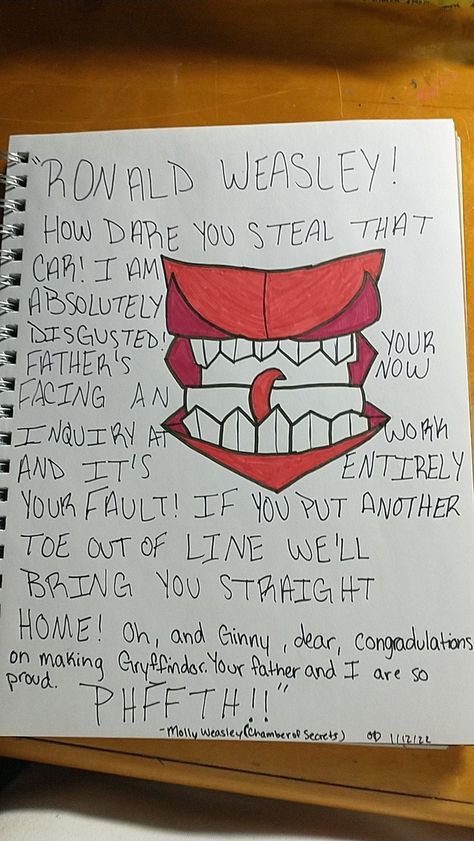 "RONALD WEASLEY!
HOW DARE YOU STEAL THAT
CAR! I AM
ABSOLUTELY
DISGUSTED! YOUR
FATHER'S NOW
FACING AN
INQUIRY AT WORK
AND IT'S ENTIRELY
YOUR FAULT! IF YOU PUT ANOTHER
TOE OUT OF LINE WE'LL
BRING YOU STRAIGHT
HOME! Oh, and Ginny, dear, congradulations
on making Gryffindor. Your father and I are so
proud. PHFFTH!!"
-Molly Weasley (Chamber of Secrets) 1/12/22